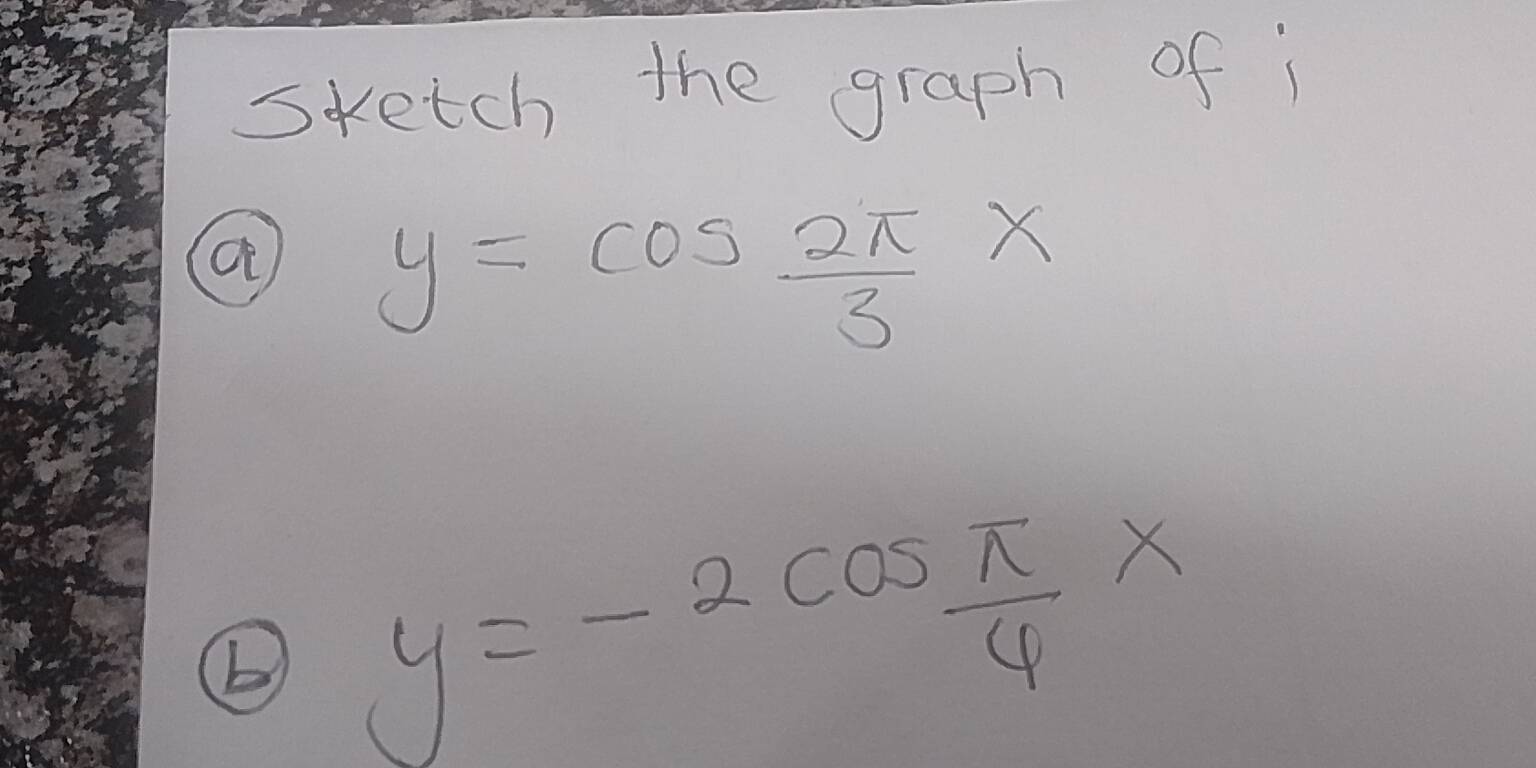 Sketch the graph of ;
(a) y = cos 2π/3 x
(b) y = - 2 cos π/4 x